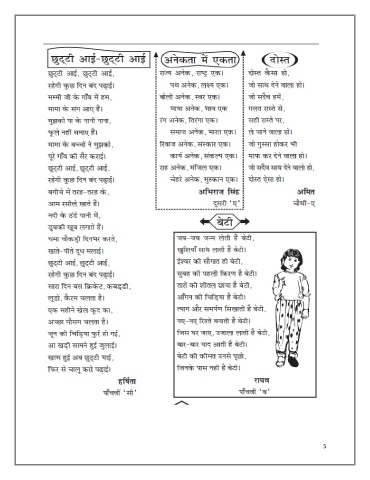 छुट्टी आई-छुट्टी आई
छुट्टी आई, छुट्टी आई,
रहेगी कुछ दिन बंद पढ़ाई।
मम्मी जी के गाँव में हम,
मामा के संग आए हैं।
मुझको पा के नानी नाना,
फूले नहीं समाए हैं।
मामा के बच्चों ने मुझको,
पूरे गाँव की सैर कराई।
छुट्टी आई, छुट्टी आई,
रहेगी कुछ दिन बंद पढ़ाई।
बगीचे में तरह-तरह के,
आम रसीले खाते हैं।
नदी के ठंडे पानी में,
डुबकी खूब लगाते हैं।
धमा चौकड़ी दिनभर करते,
खाते-पीते दूध मलाई।
छुट्टी आई, छुट्टी आई,
रहेगी कुछ दिन बंद पढ़ाई।
सारा दिन बस क्रिकेट, कबड्डी,
लूडो, कैरम चलता है।
एक महीने खेल कूद का,
अच्छा मौसम चलता है।
जून की चिड़िया फुर्र हो गई,
आ खड़ी सामने हुई जुलाई।
खत्म हुई अब छुट्टी भाई,
फिर से चालू करो पढ़ाई।
हर्षिता
पाँचवीं 'सी'
अनेकता में एकता
राज्य अनेक, राष्ट्र एक।
पथ अनेक, लक्ष्य एक।
बोली अनेक, स्वर एक।
भाषा अनेक, भाव एक
रंग अनेक, तिरंगा एक।
समाज अनेक, भारत एक।
रिवाज अनेक, संस्कार एक।
कार्य अनेक, संकल्प एक।
राह अनेक, मंजिल एक।
चेहरे अनेक, मुस्कान एक।
अभिराज सिंह
दूसरी 'ए'
दोस्त
दोस्त कैसा हो,
जो साथ देने वाला हो।
जो सदैव हमें,
गलत रास्ते से,
सही रास्ते पर,
ले जाने वाला हो।
जो गुस्सा होकर भी
माफ कर देने वाला हो।
जो सदैव साथ देने वाला हो,
दोस्त ऐसा हो।
अमित
चौथी-ए
बेटी
जब-जब जन्म लेती है बेटी,
खुशियाँ साथ लाती है बेटी।
ईश्वर की सौगात हो बेटी,
सुबह की पहली किरण है बेटी।
तारों की शीतल छाया है बेटी,
आँगन की चिड़िया है बेटी।
त्याग और समर्पण सिखाती है बेटी,
नए-नए रिश्ते बनाती है बेटी।
जिस घर जाए, उजाला लाती है बेटी,
बार-बार याद आती है बेटी।
बेटी की कीमत उनसे पूछो,
जिनके पास नहीं है बेटी।
राघव
पाँचवीं 'ब'
5